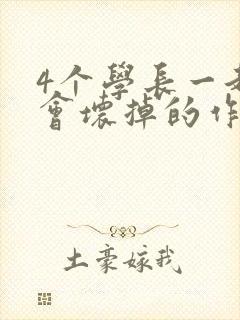 4个學長一
會壞掉的作
土豪嫁我